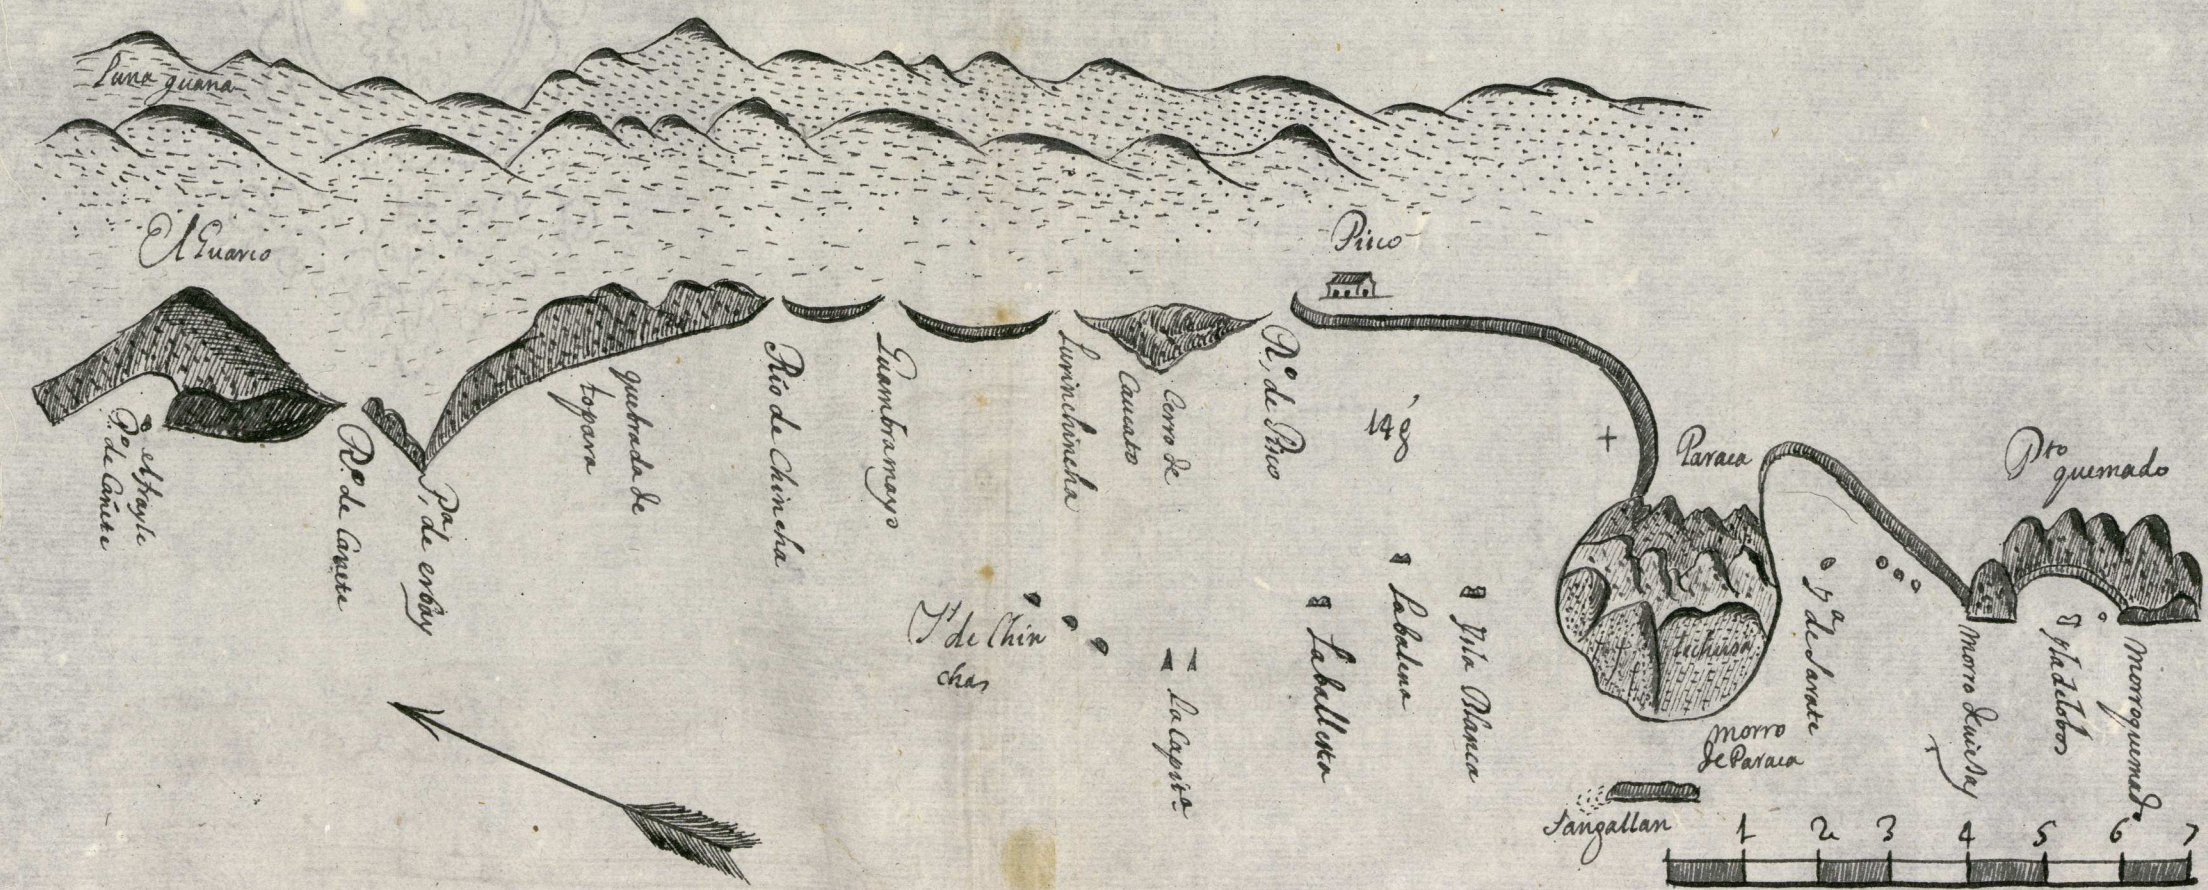 Luna guana
El Guarco
Pisco
el frayle
Pto. de Cañete
Ro. de Canete
Pa. de erbay
quebrada de
topara
Rio de Chincha
Guambramayo
Lurinchincha
Cerro de
Caucato
Ro. de Pisco
14
Paraca
Pto
quemado
Ys de Chin
chas
La Capita
La ballesta
La balena
Ysla Blanca
lechusa
morro
de Paraca
Sangallan
Ya de Sarate
morro quiesay
ysla de lobos
morro quemado
1 2 3 4 5 6 7